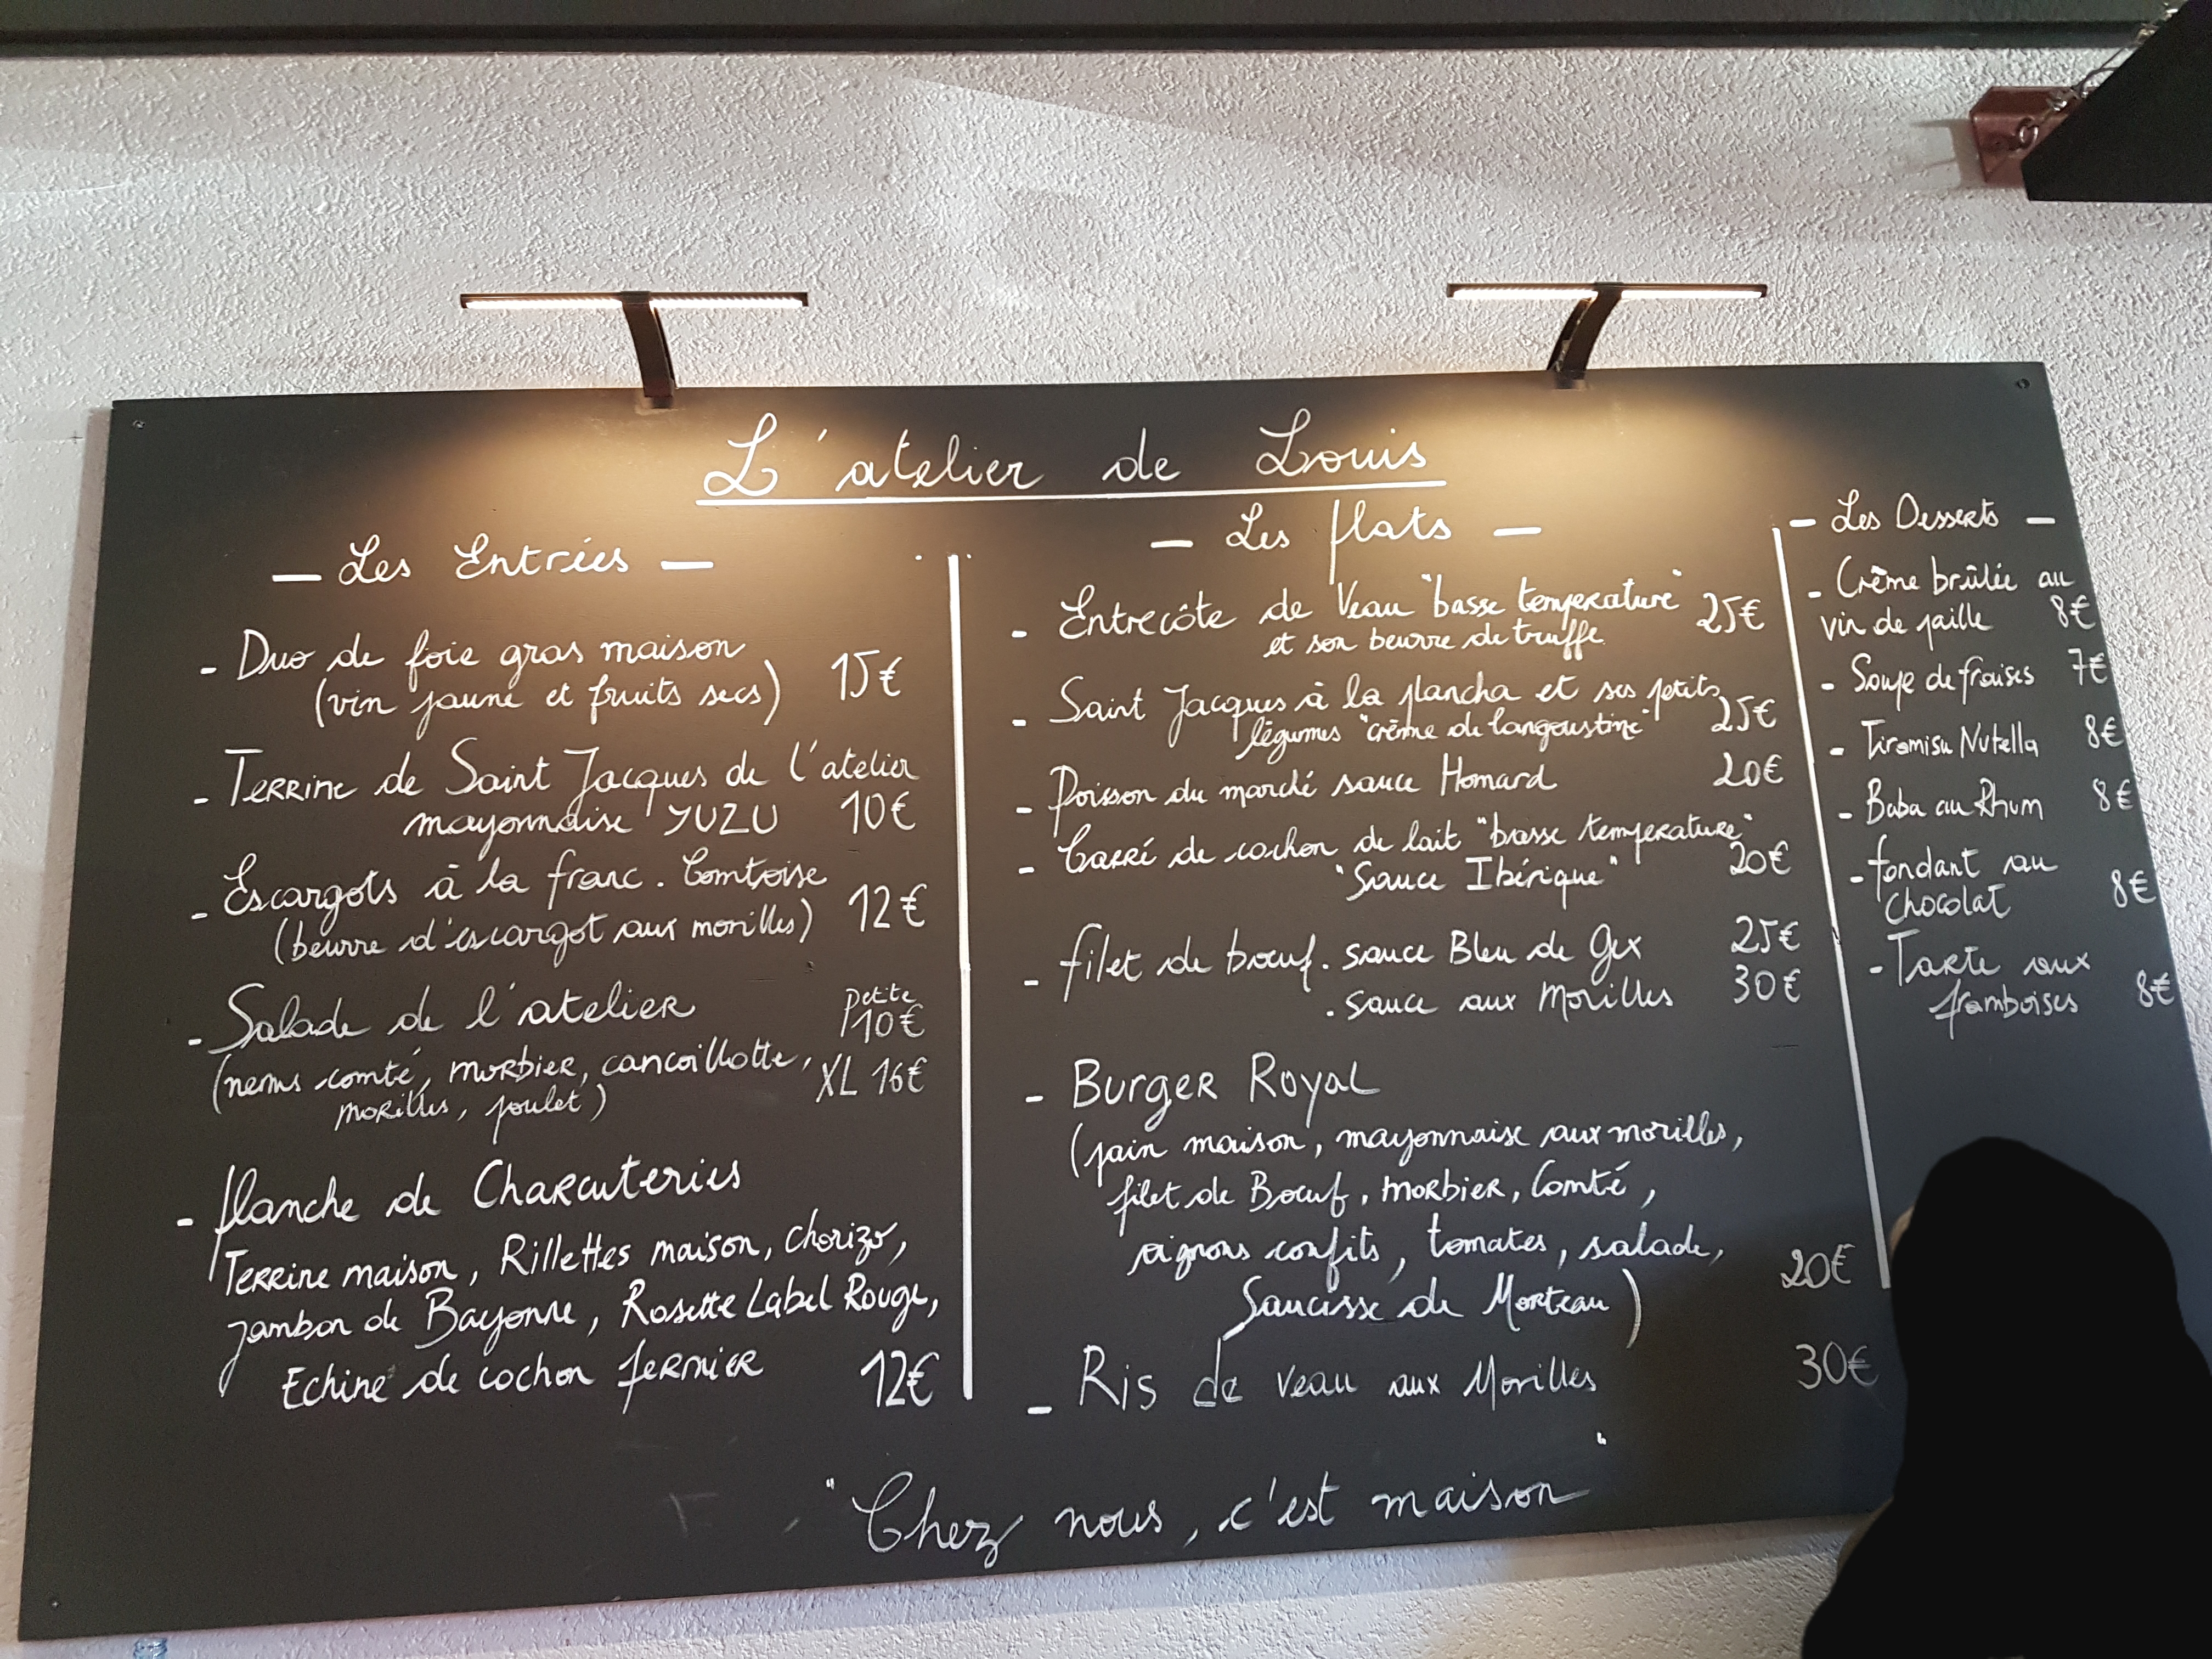 L'atelier de Louis
— Les Entrées —
- Duo de foie gras maison
(vin jaune et fruits secs) 15€
- Terrine de Saint Jacques de l'atelier
mayonnaise YUZU 10€
- Escargots à la franc. Comtoise
(beurre d'escargot aux morilles) 12€
- Salade de l'atelier Petite 10€
(nems comté, morbier, cancoillotte,
morilles, poulet) XL 16€
- Planche de Charcuteries
Terrine maison, Rillettes maison, chorizo,
jambon de Bayonne, Rosette Label Rouge,
Echine de cochon fermier 12€
— Les Plats —
- Entrecôte de Veau "basse temperature" 25€
et son beurre de truffe
- Saint Jacques à la plancha et ses petits
légumes "crème de langoustine" 25€
- Poisson du marché sauce Homard 20€
- Carré de cochon de lait "basse temperature"
"Sauce Ibérique" 20€
- filet de bœuf. sauce Bleu de Gex 25€
. sauce aux Morilles 30€
- Burger Royal
(pain maison, mayonnaise aux morilles,
filet de Bœuf, morbier, Comté,
oignons confits, tomates, salade,
Saucisse de Morteau) 20€
- Ris de veau aux Morilles 30€
— Les Desserts —
- Crème brûlée au
vin de paille 8€
- Soupe de fraises 7€
- Tiramisu Nutella 8€
- Baba au Rhum 8€
- fondant au
chocolat 8€
- Tarte aux
framboises 8€
"Chez nous, c'est maison"